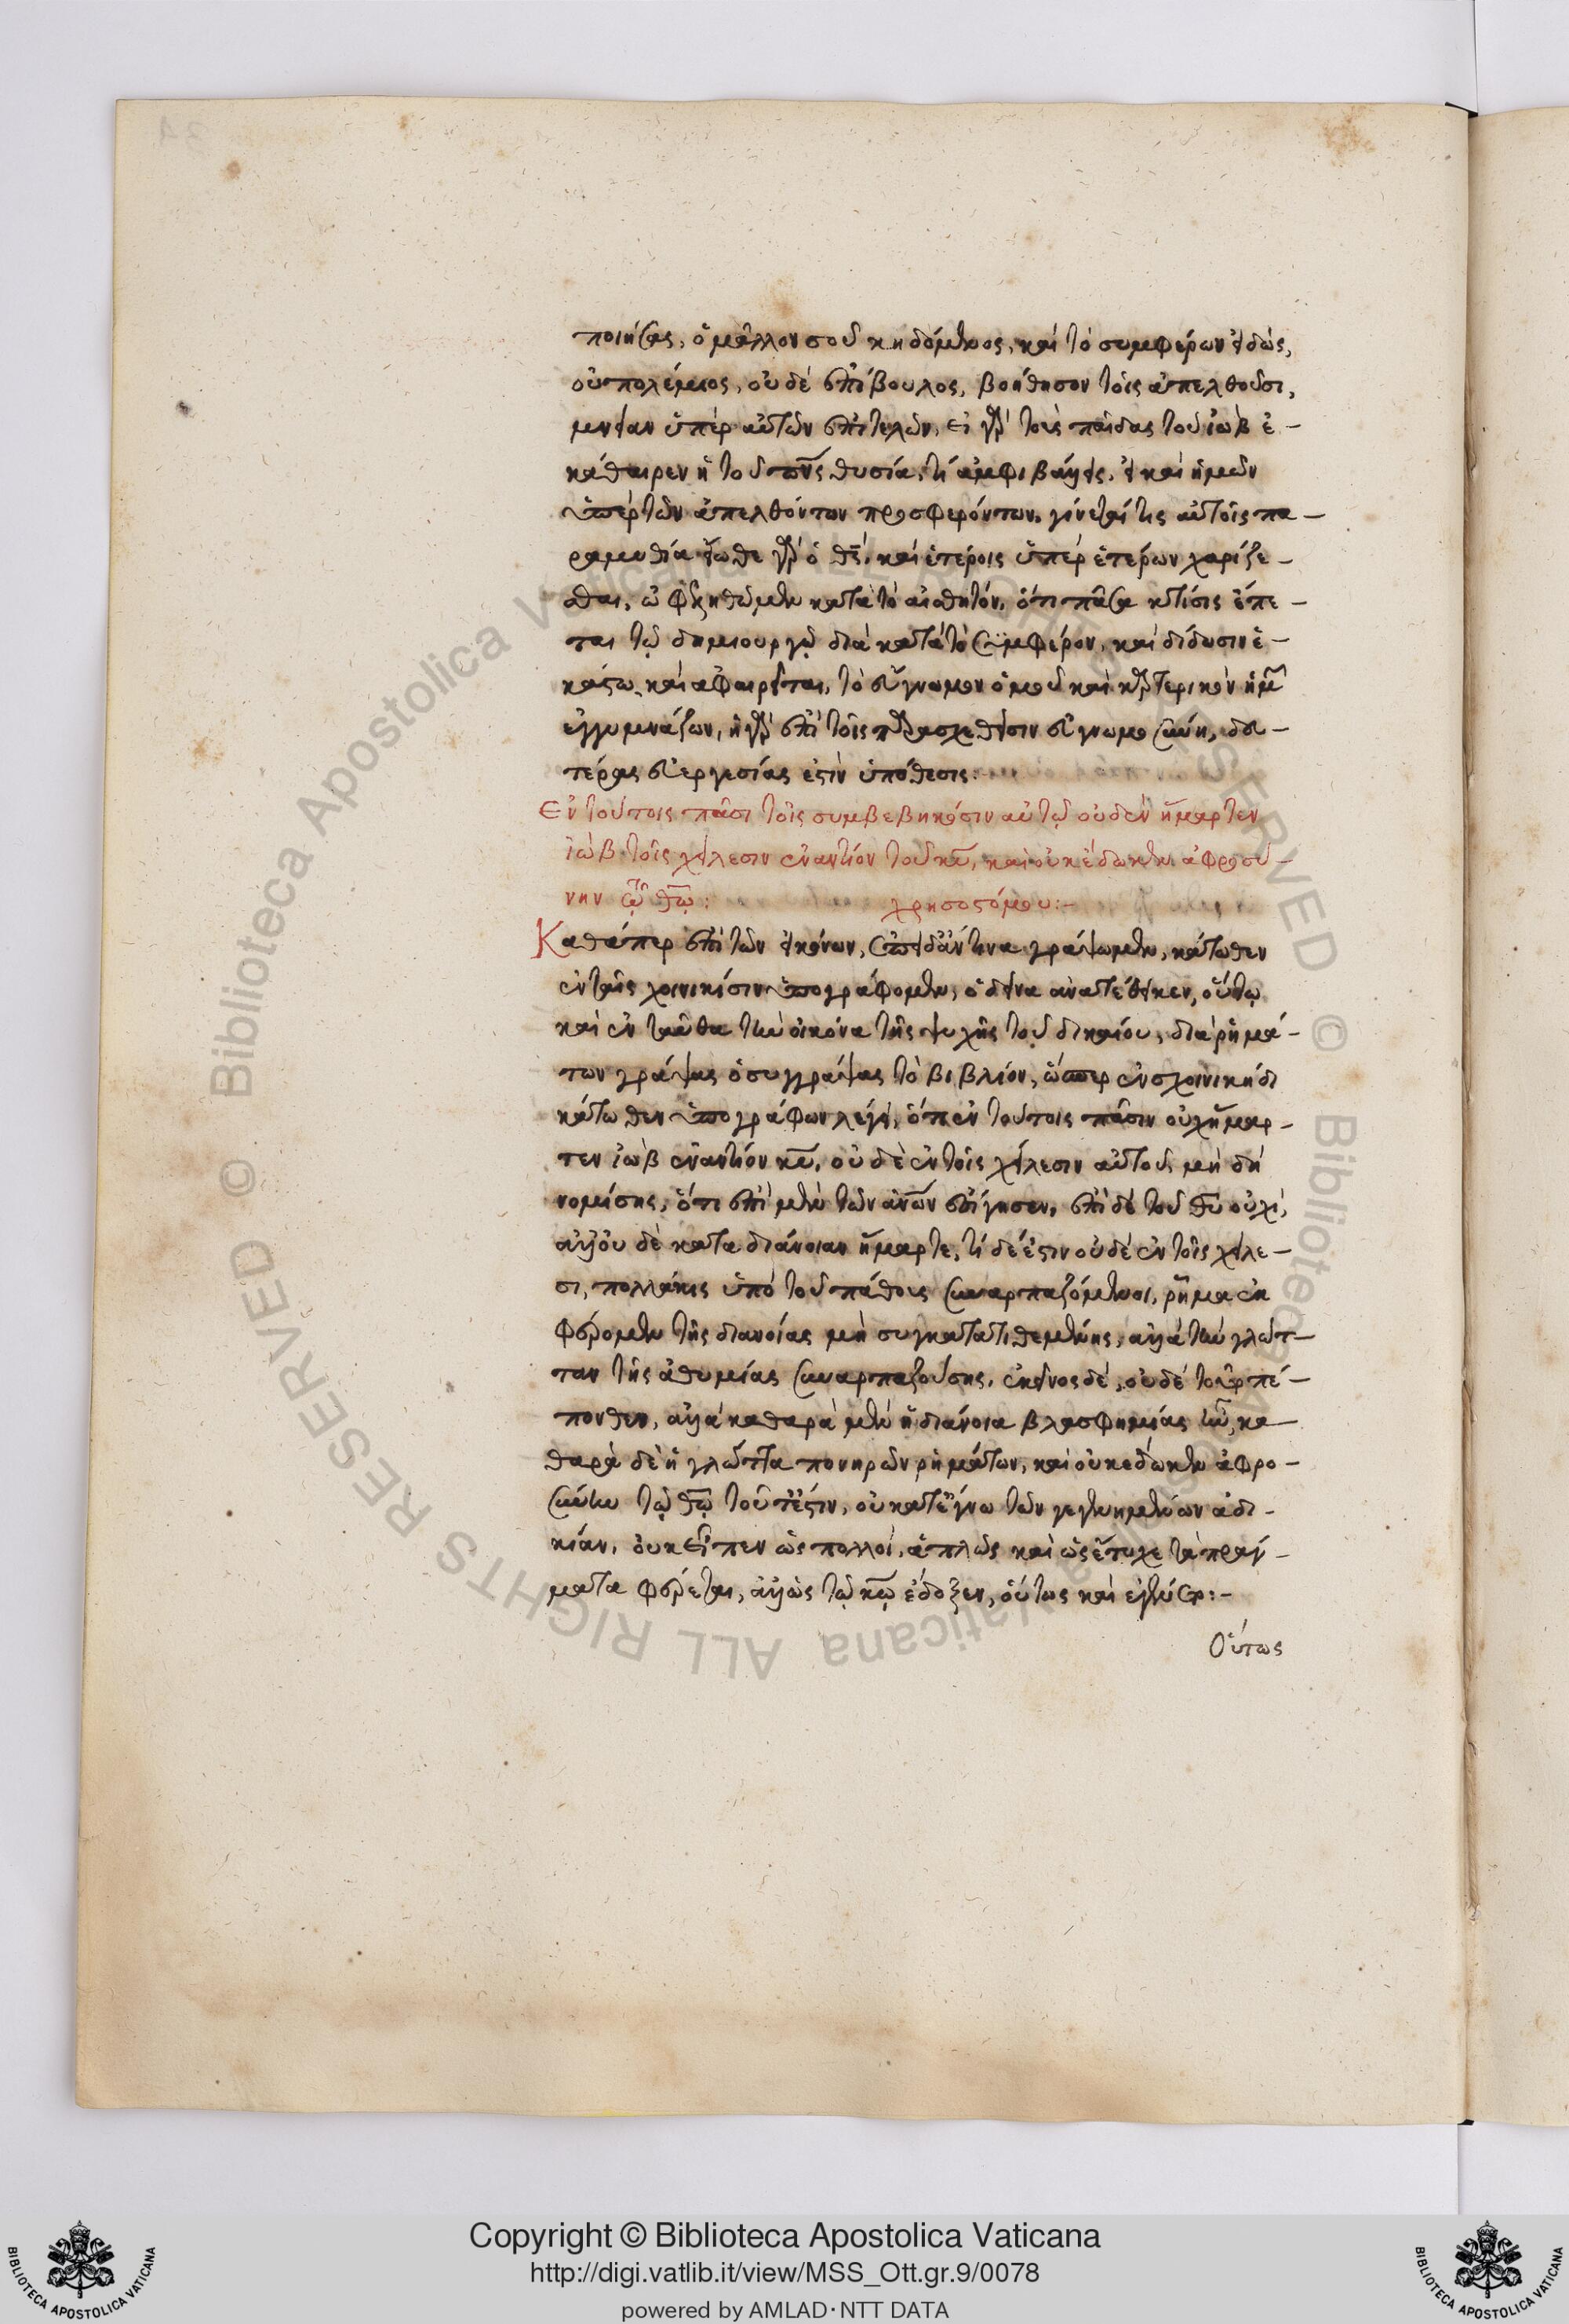 ποιήσας, ὁ μᾶλλον σοῦ κηδόμενος, καὶ τὸ συμφέρων εἰδώς,
οὐ πολέμιος, οὐδὲ ἐπίβουλος, βοήθησον τοῖς ἀπελθοῦσι,
μνείαν ὑπὲρ αὐτῶν ἐπιτελῶν, εἰ γὰρ τοὺς παῖδας τοῦ ἰὼβ ἐ-
κάθαιρεν ἡ τοῦ πρς θυσία, τί ἀμφιβάλλεις, εἰ καὶ ἡμῶν
ὑπὲρ τῶν ἀπελθόντων προσφερόντων, γίνεταί τις αὐτοῖς πα-
ραμυθία εἴωθε γὰρ ὁ θς, καὶ ἑτέροις ὑπὲρ ἑτέρων χαρίζε-
σθαι, ὠφεληθῶμεν κατὰ τὸ αἰσθητόν, ὅτι πᾶσα κτίσις ἕπε-
ται τῷ δημιουργῷ διὰ κατὰ τὸ συμφέρον, καὶ δίδωσιν ἑ-
κάστω, καὶ ἀφαιρεῖται, τὸ εὔγνωμον ὁμοῦ καὶ καρτερικὸν ἡμῖν
ἐγγυμνάζων, ἡ γὰρ ἐπὶ τοῖς παρασχεθεῖσιν εὐγνωμοσύνη, δευ-
τέρας εὐεργεσίας ἐστὶν ὑπόθεσις:
Ἐν τούτοις πᾶσι τοῖς συμβεβηκόσιν αὐτῷ οὐδὲν ἥμαρτεν
ἰὼβ τοῖς χείλεσιν ἐναντίον τοῦ κυ, καὶ οὐκ ἔδωκεν ἀφροσύ-
νην τῷ θῷ: χρυσοστόμου:-
Καθάπερ ἐπὶ τῶν εἰκόνων, ἐπειδάν τινα γράψωμεν, κάτωθεν
ἐν ταῖς χοινικίσιν ὑπογράφομεν, ὁ δεῖνα ἀνατέθεικεν, οὕτω
καὶ ἐνταῦθα τὴν εἰκόνα τῆς ψυχῆς τοῦ δικαίου, διὰ ῥημά-
των γράψας ὁ συγγράψας τὸ βιβλίον, ὥσπερ ἐν σχοινικηδι
κάτωθεν ὑπογράφων λέγει, ὅτι ἐν τούτοις πᾶσιν οὐχ ἥμαρ-
τεν ἰὼβ ἐναντίον κυ, οὐδὲ ἐν τοῖς χείλεσιν αὐτοῦ, μὴ δὴ
νομίσῃς, ὅτι ἐπὶ μὲν τῶν ἀνων ἐσίγησεν, ἐπὶ δὲ τοῦ θυ οὐχί,
ἀλλ' οὐ δὲ κατα διάνοιαν ἥμαρτε, τί δέ ἐστιν οὐδὲ ἐν τοῖς χείλε-
σι, πολλάκις ὑπὸ τοῦ πάθους συναρπαζόμενοι, ῥῆμα ἐκ
φέρομεν τῆς διανοίας μὴ συγκατατιθεμένης, ἀλλὰ τὴν γλώτ-
ταν τῆς ἀθυμίας συναρπαζούσης, ἐκεῖνος δέ, οὐδὲ τοῦτο πέ-
πονθεν, ἀλλὰ καθαρὰ μὲν ἡ διάνοια βλασφημίας ἦν, κα-
θαρὰ δὲ ἡ γλῶττα πονηρῶν ῥημάτων, καὶ οὐκ ἔδωκεν ἀφρο-
σύνην τῷ θῷ τοῦτ' ἔστιν, οὐ κατέγνω τῶν γεγενημένων ἀδι-
κίαν, οὐκ εἶπεν ὡς πολλοί, ἁπλῶς καὶ ὡς ἔτυχε τὰ πράγ-
ματα φέρεται, ἀλλ' ὡς τῷ κῷ ἔδοξεν, οὕτως καὶ ἐγένετο:-
Οὕτως
Copyright © Biblioteca Apostolica Vaticana
http://digi.vatlib.it/view/MSS_Ott.gr.9/0078
powered by AMLAD·NTT DATA